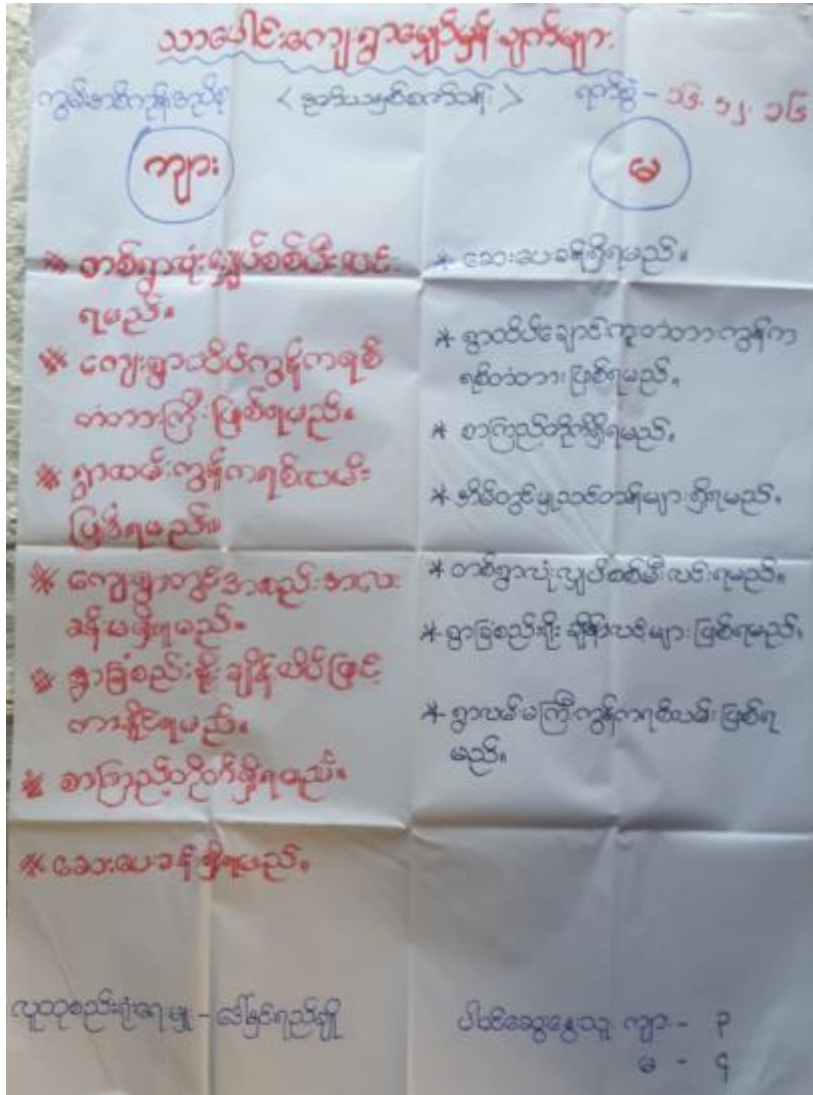 သာပေါင်းကျေးရွာမျှော်မှန်းချက်များ
ရက်စွဲ - ၁၆.၁၂.၁၆
ကျား
မ
* တစ်ရွာလုံးလျှပ်စစ်မီးလင်း
ရမည်။
* ကျေးရွာထိပ်ကွန်ကရစ်
တံတားကြီးဖြစ်ရမည်။
* ရွာလမ်းကွန်ကရစ်လမ်း
ဖြစ်ရမည်။
* ကျေးရွာတွင်အစည်းအဝေး
ခန်းမရှိရမည်။
* ရွာခြံစည်းရိုးချိန်လင့်ဖြင့်
ကာနိုင်ရမည်။
* စာကြည့်တိုက်ရှိရမည်။
* ဆေးပေးခန်းရှိရမည်။
* ဆေးပေးခန်းရှိရမည်။
* ရွာထိပ်ချောင်းကူးတံတားကွန်က
ရစ်တံတားဖြစ်ရမည်။
* စာကြည့်တိုက်ရှိရမည်။
* အိမ်တွင်းမှုသင်တန်းများရှိရမည်။
* တစ်ရွာလုံးလျှပ်စစ်မီးလင်းရမည်။
* ရွာခြံစည်းရိုးချိန်းလင့်များဖြစ်ရမည်။
* ရွာလမ်းမကြီးကွန်ကရစ်လမ်းဖြစ်ရ
မည်။
လူထုစည်းရုံးရေးမှူး - ဒေါ်နှင်းရည်ချို
ပါဝင်ဆွေးနွေးသူ ကျား - ၃
မ - ၄